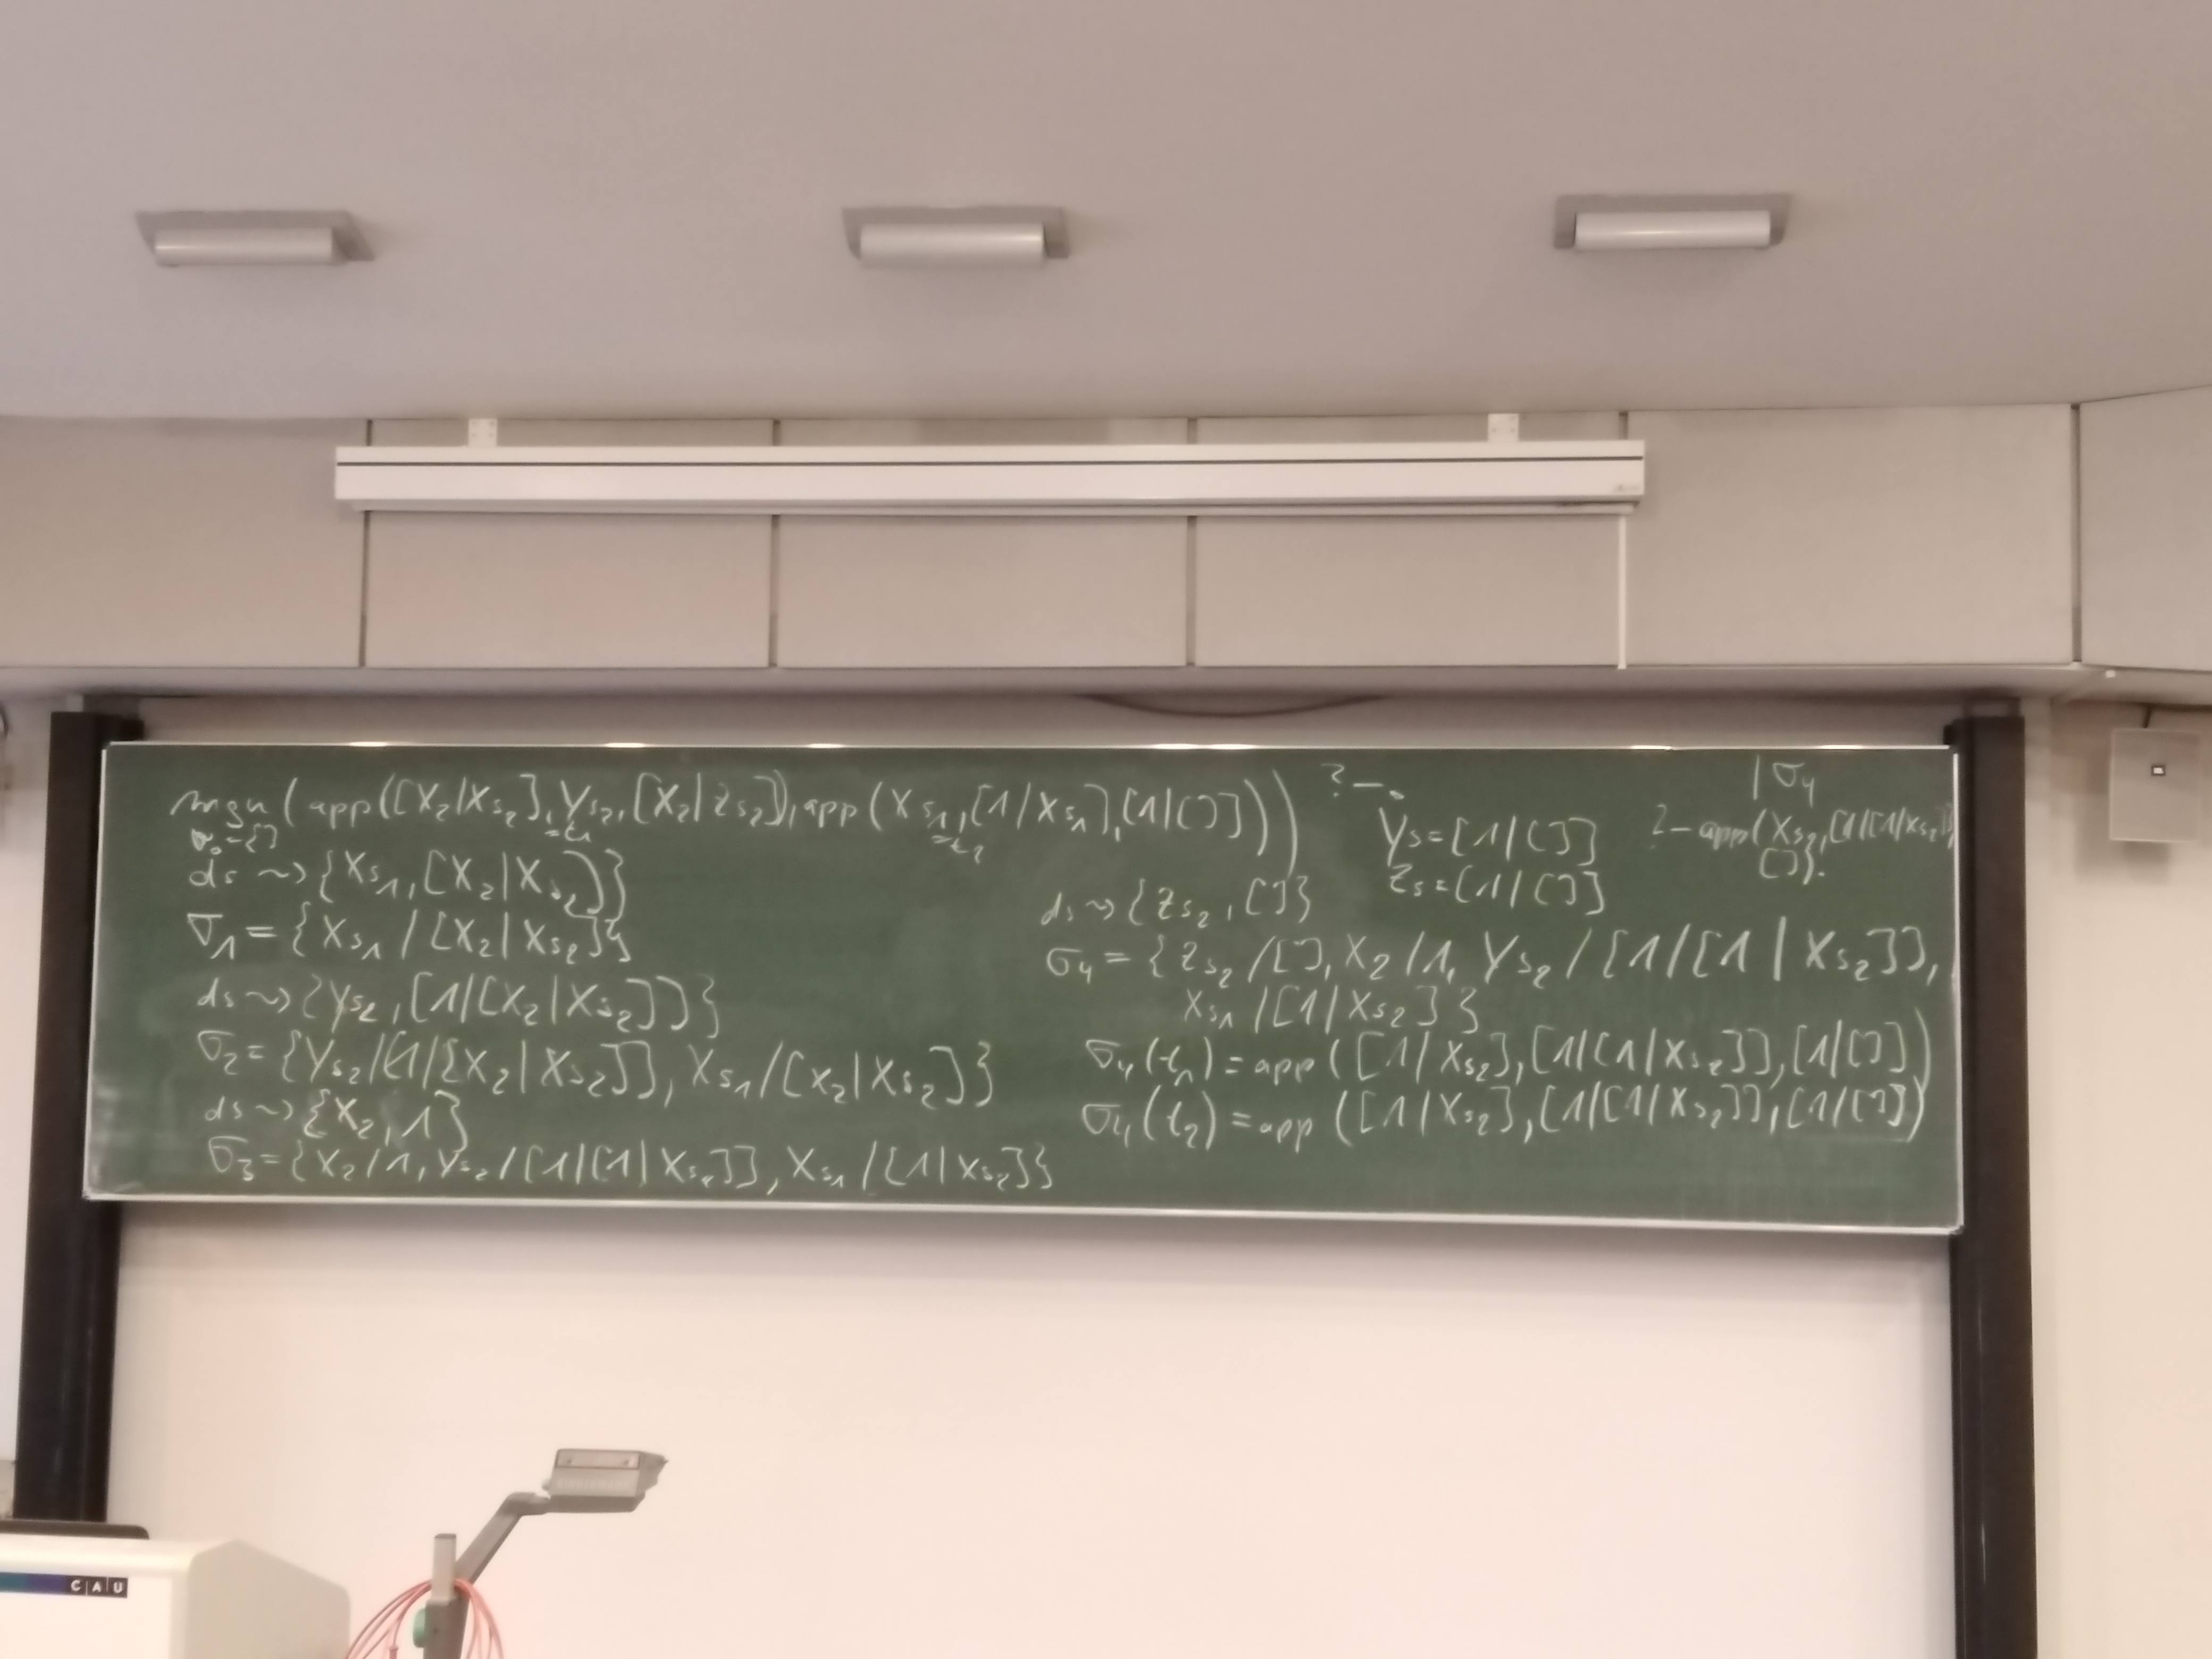 mgu(app([X₂|Xs₂],Ys₂,[X₂|Zs₂]),app(Xs₁,[1|Xs₁],[1|[]]))
σ₀={} =t₁ =t₂
ds ~> {Xs₁,[X₂|Xs₂]}
σ₁ = {Xs₁ / [X₂|Xs₂]}
ds ~> {Ys₂,[1|[X₂|Xs₂]]}
σ₂ = {Ys₂/[1|[X₂|Xs₂]], Xs₁/[X₂|Xs₂]}
ds ~> {X₂,1}
σ₃ = {X₂/1, Ys₂/[1|[1|Xs₂]], Xs₁/[1|Xs₂]}
?-.
Ys=[1|[]]
Zs=[1|[]]
ds ~> {Zs₂,[]}
σ₄ = {Zs₂/[], X₂/1, Ys₂/[1|[1|Xs₂]],
Xs₁/[1|Xs₂]}
σ₄(t₁) = app([1|Xs₂],[1|[1|Xs₂]],[1|[]])
σ₄(t₂) = app([1|Xs₂],[1|[1|Xs₂]],[1|[]])
| σ₄
?- app(Xs₂,[1|[1|Xs₂]],
[]).
C|A|U